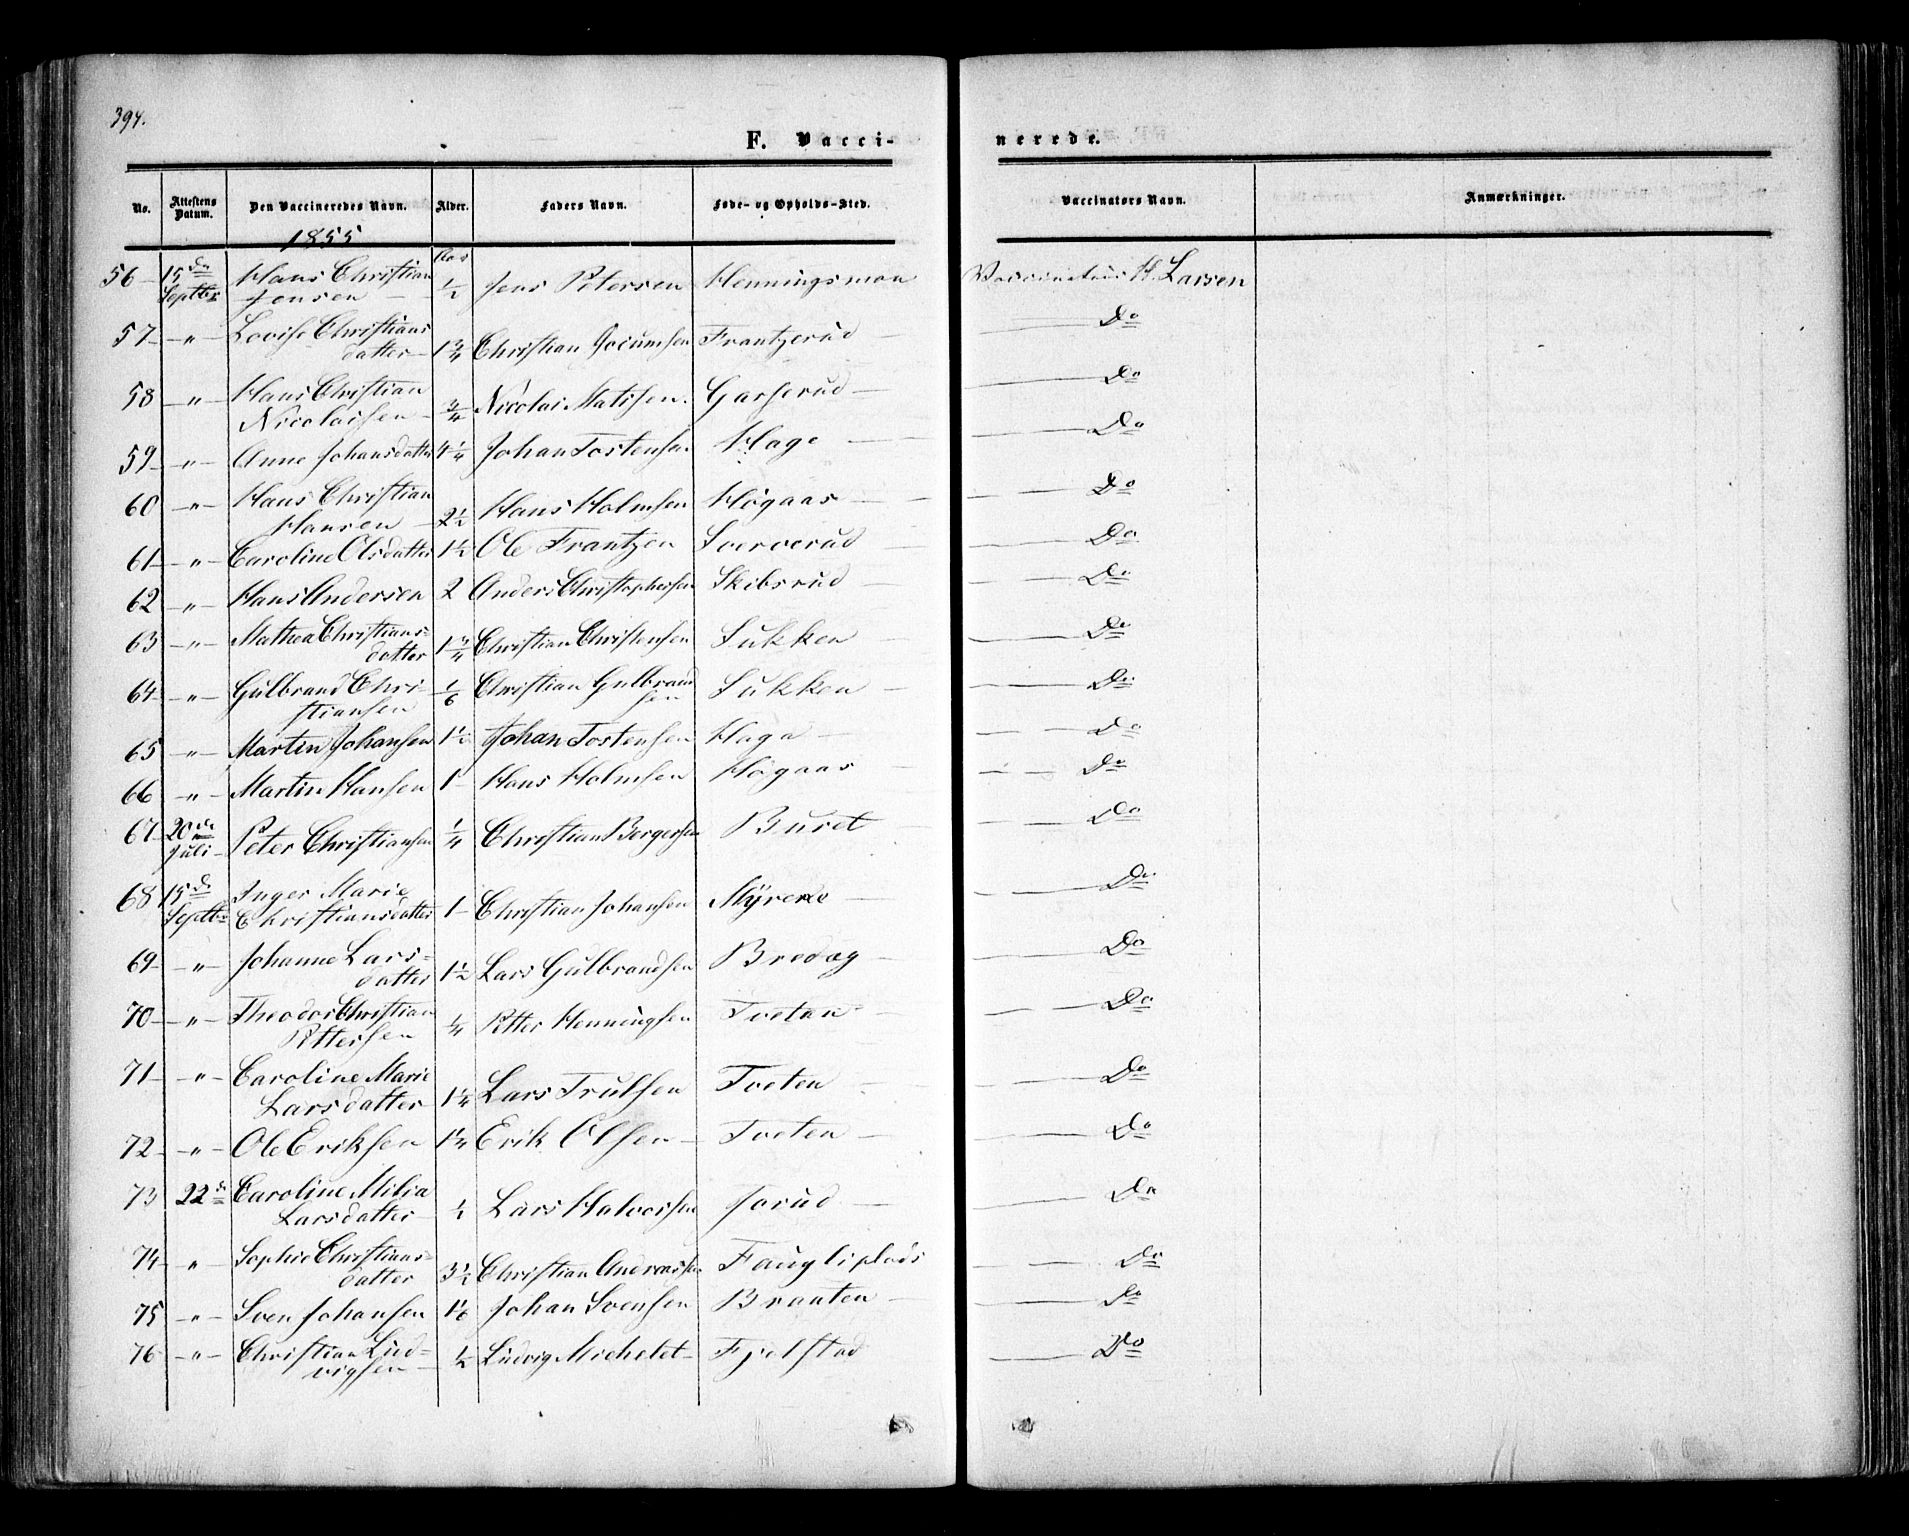 394.
F. Vacci-
nerede.
No. Attestens Datum. Den Vaccineredes Navn. Alder. Faders Navn. Føde- og Opholds-Sted. Vaccinators Navn. Anmærkninger.
1855 Aar
56 15de Septbr Hans Christian Jensen ½ Jens Petersen Henningsmoen Vaccinateur H. Larsen
57 " Lovise Christians datter 1¾ Christian Frantzerud Do
58 " Hans Christian Nicolaisen ¾ Nicolai Matisen. Garserud Do
59 " Anne Johansdatter 4¼ Johan Tostensen Hage Do
60 " Hans Christian Hansen 2½ Hans Holmsen Høgaas Do
61 " Caroline Olsdatter 1½ Ole Frantzen Sververud Do
62 " Hans Andersen 2 Anders Christophersen Skibsrud Do
63 " Mathea Christians= datter 1¾ Christian Christensen Sukken Do
64 " Gulbrand Chri- stiansen 1/6 Christian Gulbrand sen Sukken Do
65 " Martin Johansen 1½ Johan Tostensen Haga Do
66 " Martin Hansen 1 Hans Holmsen Høgaas Do
67 20de Juli Peter Christiansen ¼ Christian Bergersen Buret Do
68 15de Septbr Inger Marie Christiansdatter 1 Christian Johansen Do
69 " Johanne Lars= datter 1½ Lars Gulbrandsen Bredag Do
70 " Theodor Christian Pettersen ¼ Petter Henningsen Tveten Do
71 " Caroline Marie Larsdatter 1¼ Lars Trulsen Tveten Do
72 " Ole Eriksen 1¼ Erik Olsen Tveten Do
73 22de Caroline Milia Larsdatter ½ Lars Halvorsen Jorud Do
74 " Sophie Christians= datter 3½ Christian Andreassen Faugliplads Do
75 " Sven Johansen 1 1/6 Johan Svensen Braaten Do
76 " Christian Lud= vigsen ½ Ludvig Michelet Fjelstad Do